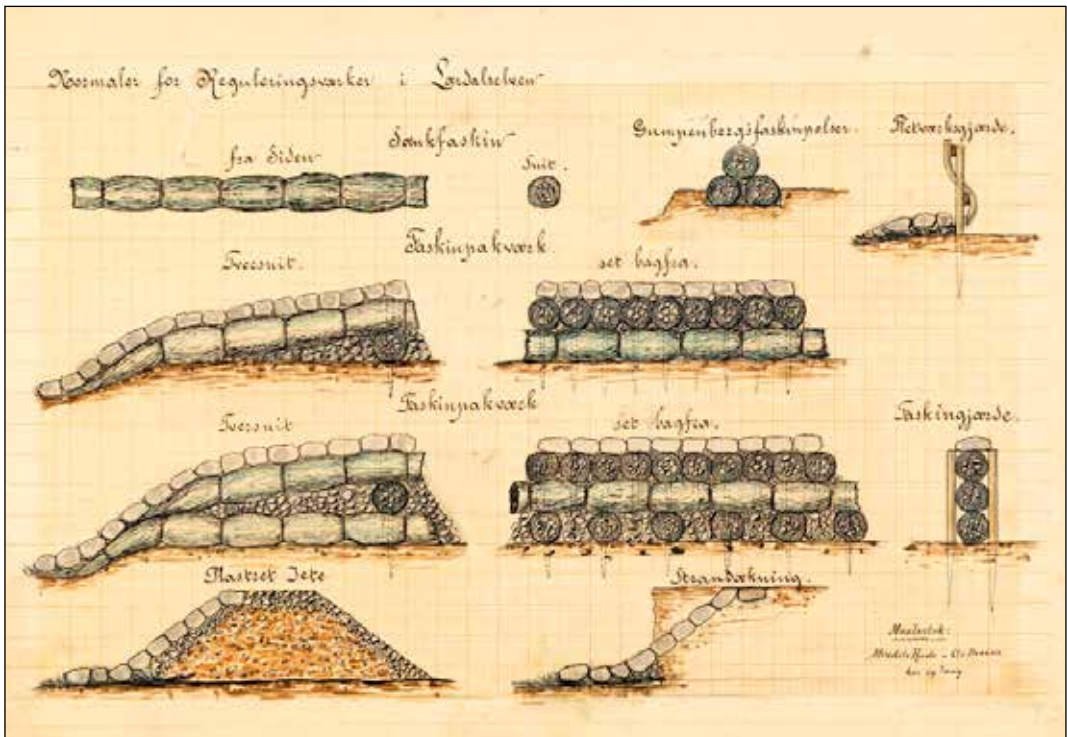 Normaler for Reguleringsværker i Lærdalselven
Sænkfaskin
fra Siden
Snit.
Gumpenbergsfaskinpølser.
Fletværksgjærde.
Faskinpakværk
Tversnit.
set bagfra.
Faskinpakværk
Tversnit
set bagfra.
Faskingjærde.
Plastret Jete
Strandækning.
Maalestok: